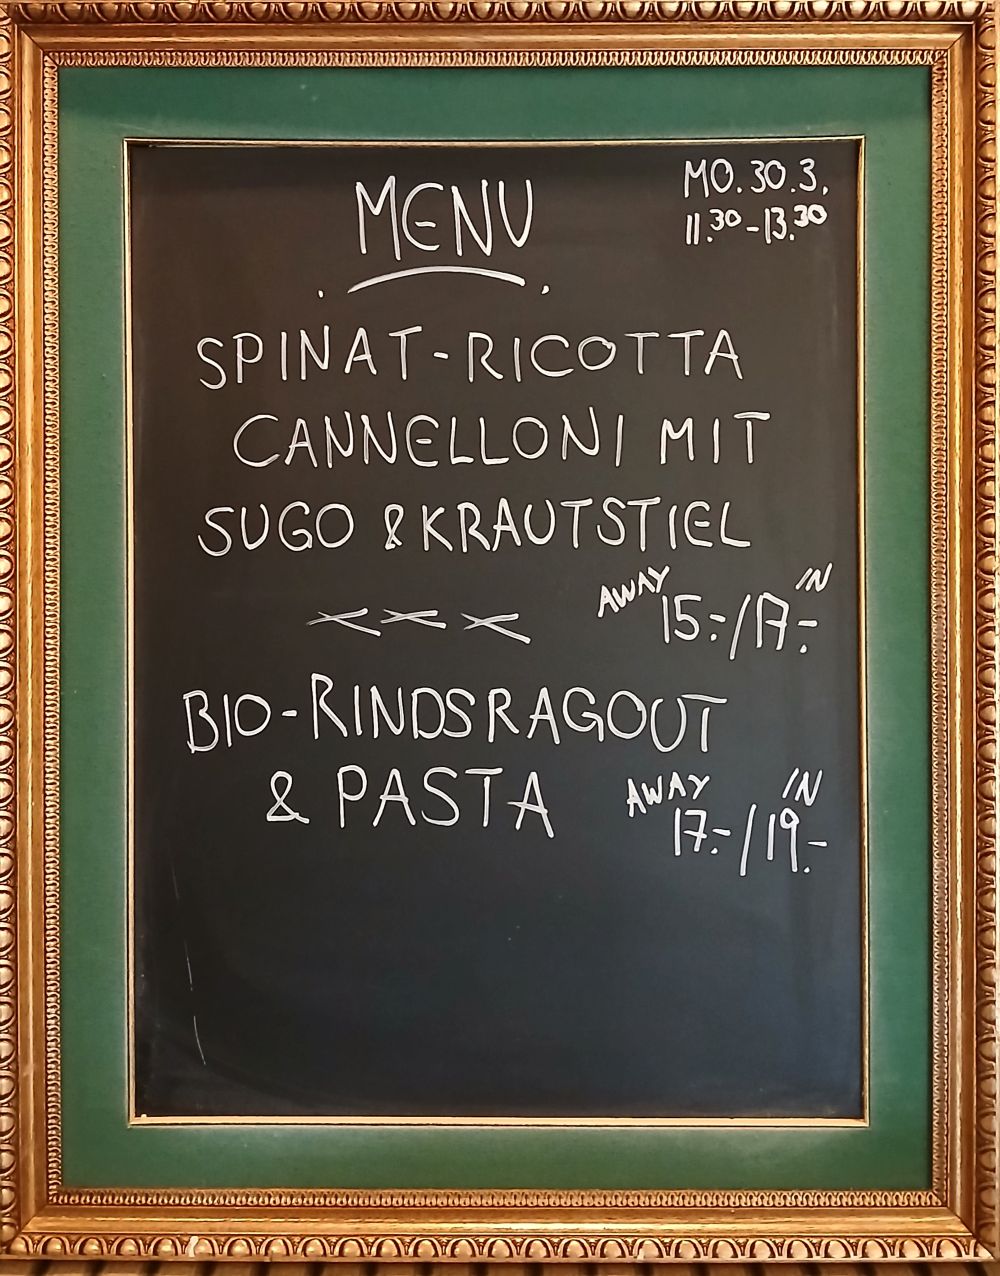 MENU
MO. 30.3.
11.30-13.30
SPINAT-RICOTTA
CANNELLONI MIT
SUGO & KRAUTSTIEL
AWAY IN
15.-/17.-
BIO-RINDSRAGOUT
& PASTA
AWAY IN
17.-/19.-